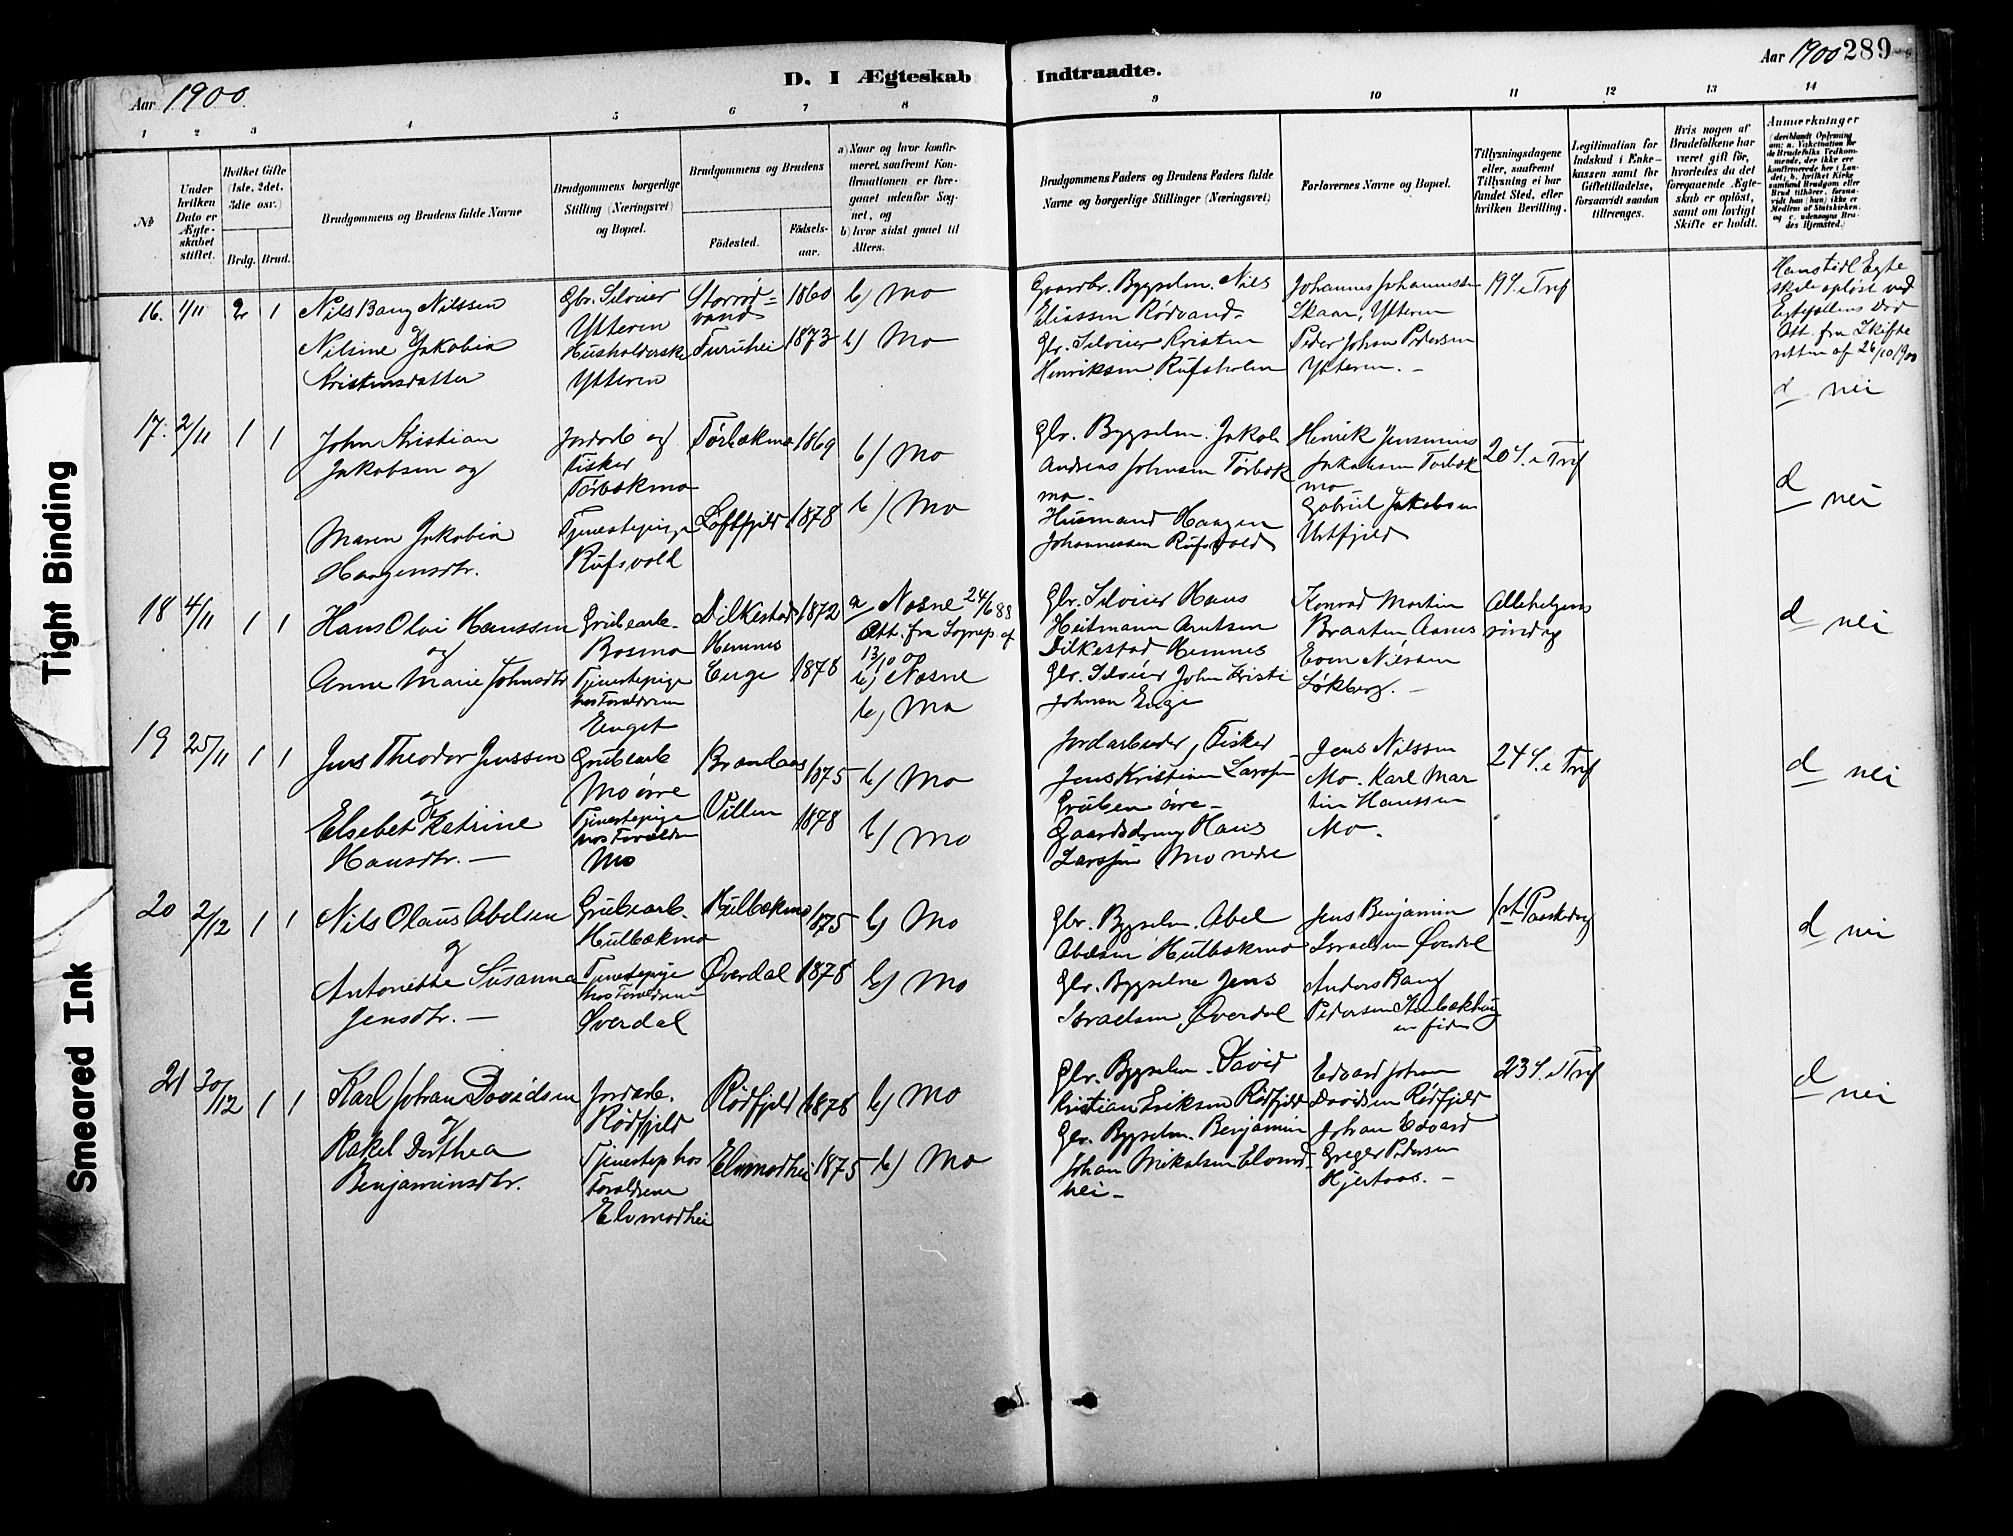 Aar 1900
D. I Ægteskab
Indtraadte.
Aar 1900
289
1 2 3 4 5 6 7 8
9 10 11 12 13 14
No
Under hvilken Dato er Ægteskabet stiftet.
Hvilket Gifte (1ste, 2det, 3die osv.)
Brdg. Brud.
Brudgommens og Brudens fulde Navne
Brudgommens borgerlige Stilling (Næringsvei) og Bopæl.
Brudgommens og Brudens
Fødested.
Fødselsaar.
a) Naar og hvor konfirmeret, saafremt Konfirmationen er foregaaet udenfor Sognet, og
b) hvor sidst gaaet til Alters.
Brudgommens Faders og Brudens Faders fulde Navne og borgerlige Stillinger (Næringsvei)
Forlovernes Navne og Bopæl.
Tillysningsdagene eller, saafremt Tillysning ei har fundet Sted, efter hvilken Bevilling.
Legitimation for Indskud i Enkekassen samt for Giftetilladelse, forsaavidt saadan tiltrænges.
Hvis nogen af Brudefolkene har været gift før, hvorledes da det foregaaende Ægteskab er opløst, samt om lovligt Skifte er holdt.
Anmærkninger
16. 1/11 2 1
Nils Bang Nilssen
og
Nilsine Jakobia
Kristensdatter
Gbr. Selveier
Ytteren
Husholderske
Ytteren
Storrød=
vand
Furuhei
1860
1873
b) Mo
b) Mo
Gaardbr. Bygselm. Nils
Eliassen Rødvand.
Gbr. Selveier Kristen
Henriksen Rufsholm
Johannes Johannessen
Skaar, Ytteren
Peder Johan Pedersen
Ytteren. -
19 S. e Tref
Hans tidl Egte
skab opløst ved
Egtefællens Død
Att. fra Skifte
retten af 26/10 1900
d nei
17. 2/11 1 1
John Kristian
Jakobsen og
Maren Jakobia
Haagensdtr.
Jordarb og
Fisker
Tørbækmo
Tjenestepige
Rufsvold
Tørbækmo
Loftfjeld
1869
1878
b) Mo
b) Mo
Gbr. Bygselm. Jakob
Andreas Johnsen Tørbæk
mo-
Husmand Haagen
Johannessen Rufsvold
Henrik Jensenius
Jakobsen Tørbæk
mo
Gabriel Jakobsen
Urtfjeld
20 S. e Tref
d nei
18 4/11 1 1
Hans Olai Hanssen
og
Anne Marie Johnsdtr
Grubearb.
Bosmo
Tjenestepige
hos Forældrene
Enget
Dilkestad
Hemnes
Enge
1872
1878
a Nesne 24/6 88
Att. fra Sognep af
13/10 00
b) Nesne
b) Mo
Gbr. Selveier Hans
Heitmann Arntsen
Dilkestad Hemnes
Gbr. Selveier John Kristi
Johnsen Enge
Konrad Martin
Braaten Aanes
Even Nilssen
Løkberg. -
Allehelgens
søndag
d nei
19 25/11 1 1
Jens Theodor Jenssen
og
Elsebet Katrine
Hansdtr. -
Grubearb
Mo øvre
Tjenestepige
hos Forældre
Mo
Brendaas
Villen
1875
1878
b) Mo
b) Mo
Jordarbeider, Fisker
Jens Kristian Larssen
Gruben øvre-
Gaardsdreng Hans
Larssen Mo nedre
Jens Nilssen
Mo. Karl Mar
tin Hanssen
Mo.
24 S. e Tref
d nei
20 2/12 1 1
Nils Claus Abelsen
og
Antonette Susanna
Jensdtr. -
Grubearb.
Hulbækmo
Tjenestepige
hos Forældrene
Øverdal
Hulbækmo
Øverdal
1875
1878
b) Mo
b) Mo
Gbr. Bygselm. Abel
Abelsen Hulbækmo
Gbr. Bygselm Jens
Israelsen Øverdal
Jens Benjamin
Israelsen Øverdal
Anders Bang
Pedersen
d nei
21 30/12 1 1
Karl Johan Davidsen
og
Rakel Dorthea
Benjaminsdtr.
Jordarb.
Rødfjeld
Tjenestep hos
Forældrene
Elvmodhei
Rødfjeld
Elvmodhei
1878
1875
b) Mo
b) Mo
Gbr. Bygselm. David
Kristian Eriksen Rødfjeld
Gbr. Bygselm. Benjamin
Johan Mikalsen Elvmod-
hei-
Edvard Johan
Davidsen Rødfjeld
Johan Edvard
Greger Pedersen
Hjertaas. -
23 S. e Tref
d nei
Tight Binding
Smeared Ink